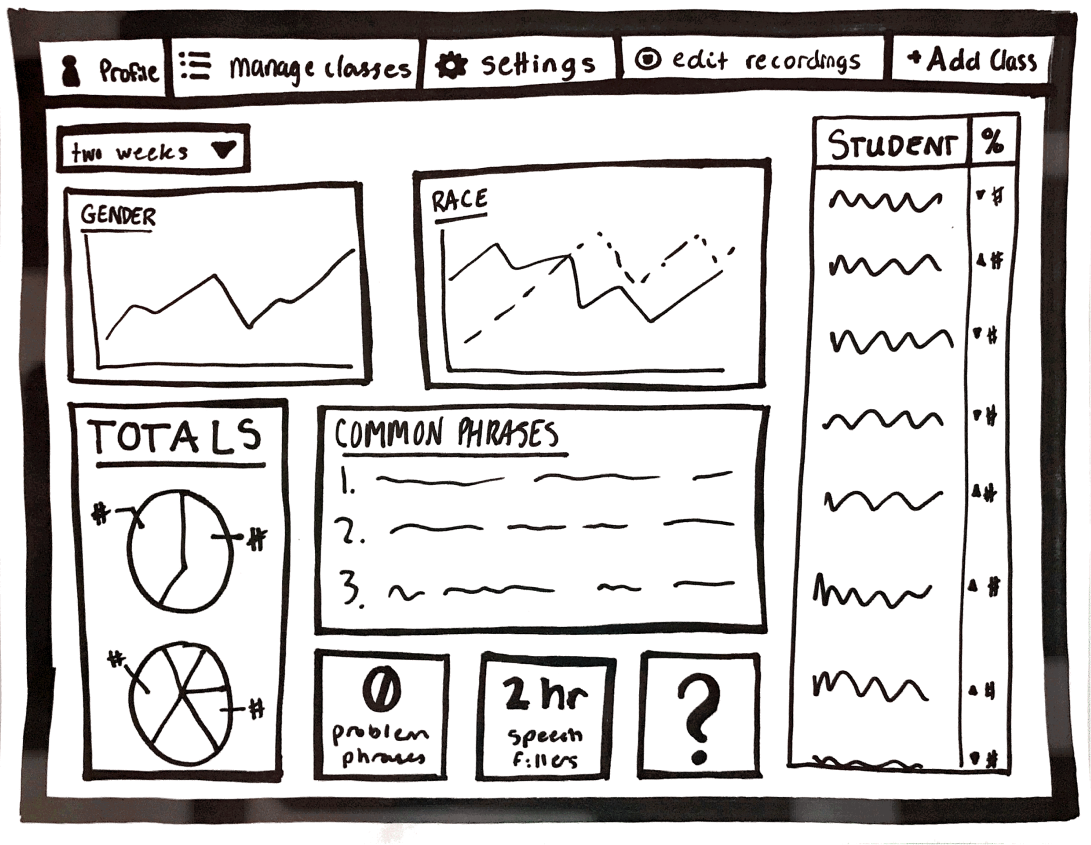 Profile
manage classes
settings
edit recordings
+Add Class
two weeks
GENDER
RACE
STUDENT %
#
#
#
#
#
#
#
#
TOTALS
#
#
#
#
COMMON PHRASES
1.
2.
3.
0
problem
phrases
2 hr
speech
fillers
?